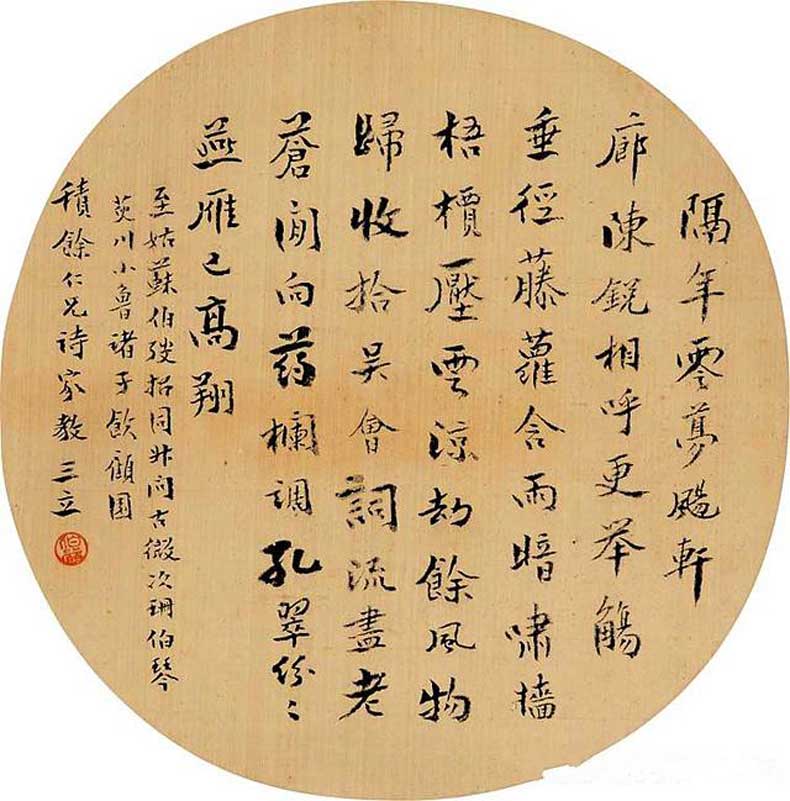 隔年零夢颺軒
廊陳銳相呼更举觴
垂徑藤蘿含雨暗嘯墻
梧檟壓雲涼劫餘風物
歸收拾吳會詞流盡老
蒼閒向药欄調孔翠纷〻
燕雁已高翔
至姑蘇伯弢招同叔问古微次珊伯琴
小魯诸子飲顧园
積餘仁兄詩家教 三立